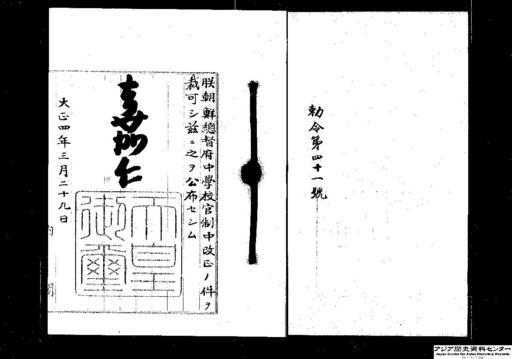 勅令第四十一號
朕朝鮮總督府中學校官制中改正ノ件ヲ
裁可シ茲ニ之ヲ公布セシム
嘉仁
天皇
御璽
大正四年三月二十九日
内閣
アジア歴史資料センター
Japan Center for Asian Historical Records